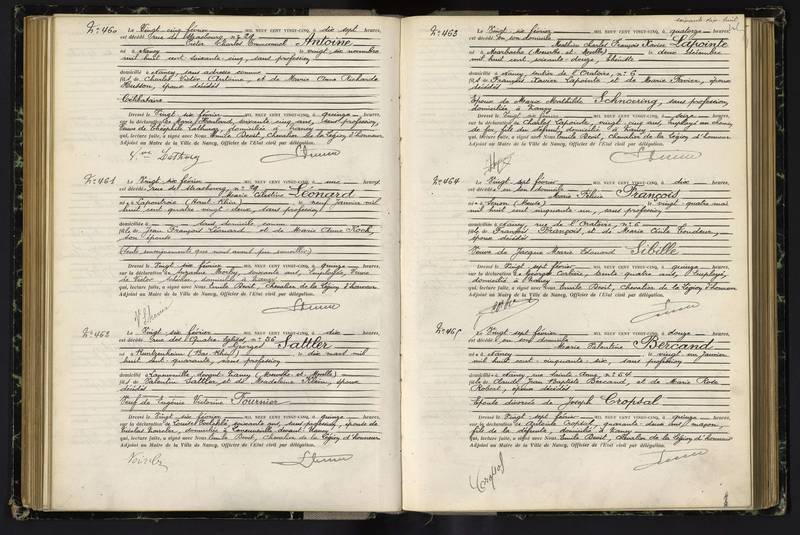 soixante dix huit
N° 460
Le Vingt cinq février MIL NEUF CENT VINGT-CINQ, à dix sept heures,
est décédé rue de Strasbourg, n° 29
Victor Charles Emmanuel Antoine
né à Nancy le vingt six novembre
mil huit cent soixante cinq, sans profession
domicilié à Nancy, sans adresse connue
fils de Charles Victor Antoine, et de Marie Anne Richarde
Husson, époux décédés
Célibataire
Dressé le Vingt six février MIL NEUF CENT VINGT-CINQ, à quinze heures,
sur la déclaration de Marie soixante cinq ans, sans profession,
veuve de Théophile domiciliée à Nancy
qui, lecture faite, a signé avec Nous, Emile Boit, Chevalier de la Légion d'honneur
Adjoint au Maire de la Ville de Nancy, Officier de l'Etat civil par délégation.
N° 461
Le Vingt six février MIL NEUF CENT VINGT-CINQ, à une heures
est décédée rue de Strasbourg, n° 29
Marie Célestine Léonard
née à Lapoutroie (Haut-Rhin) le neuf janvier mil
huit cent quatre vingt deux, sans profession
domiciliée à sans domicile connu
fille de Jean François Léonard et de Marie Anne Koch,
son épouse
(seuls renseignements que nous avons pu recueillir)
Dressé le Vingt six février MIL NEUF CENT VINGT-CINQ, à quinze heures,
sur la déclaration de Suzanne soixante ans, employée, veuve
de Victor domiciliée à Nancy
qui, lecture faite, a signé avec Nous, Emile Boit, Chevalier de la Légion d'honneur
Adjoint au Maire de la Ville de Nancy, Officier de l'Etat civil par délégation.
N° 462
Le Vingt six février MIL NEUF CENT VINGT-CINQ, à dix heures,
est décédé rue des Quatre Eglises, n° 56
Georges Sattler
né à Kuntzenheim (Bas-Rhin) le dix mars mil
huit cent quarante, sans profession
domicilié à Laneuveville devant Nancy (Meurthe et Moselle)
fils de Valentin Sattler, et de Madeleine Klein, époux
décédés
Veuf de Eugénie Victorine Fournier
Dressé le Vingt six février MIL NEUF CENT VINGT-CINQ, à quinze heures,
sur la déclaration de soixante ans, sans profession, épouse de
Nicolas domiciliée à Laneuveville devant Nancy
qui, lecture faite, a signé avec Nous, Emile Boit, Chevalier de la Légion d'honneur
Adjoint au Maire de la Ville de Nancy, Officier de l'Etat civil par délégation.
N° 463
Le Vingt six février MIL NEUF CENT VINGT-CINQ, à quatorze heures,
est décédé en son domicile
Mathieu Charles François Xavier Lapointe
né à Marbache (Meurthe et Moselle) le deux décembre
mil huit cent soixante-douze, ébéniste
domicilié à Nancy, sentier de l'Oratoire, n° 6
fils de François Xavier Lapointe et de Marie Favier, époux
décédés
Epoux de Marie Mathilde Schnoering, sans profession,
domiciliée à Nancy
Dressé le Vingt six février MIL NEUF CENT VINGT-CINQ, à seize heures,
sur la déclaration de Charles Lapointe, vingt cinq ans, employé au chemin
de fer, fils du défunt, domicilié à Nancy
qui, lecture faite, a signé avec Nous, Emile Boit, Chevalier de la Légion d'honneur
Adjoint au Maire de la Ville de Nancy, Officier de l'Etat civil par délégation.
N° 464
Le Vingt sept février MIL NEUF CENT VINGT-CINQ, à dix heures,
est décédée en son domicile
Marie Félicie François
née à (Meuse) le vingt quatre mai
mil huit cent cinquante un, sans profession
domiciliée à Nancy, de l'Oratoire, n° 6
fille de François François, et de Marie Cécile Tondeur,
époux décédés
Veuve de Jacques Marie Edmond Sibille
Dressé le Vingt sept février MIL NEUF CENT VINGT-CINQ, à quinze heures,
sur la déclaration de Georges trente quatre ans, employé,
domicilié à Nancy
qui, lecture faite, a signé avec Nous, Emile Boit, Chevalier de la Légion d'honneur
Adjoint au Maire de la Ville de Nancy, Officier de l'Etat civil par délégation.
N° 465
Le Vingt sept février MIL NEUF CENT VINGT-CINQ, à douze heures,
est décédée en son domicile
Marie Valentine Bercand
née à Nancy le vingt un janvier
mil huit cent cinquante-six, sans profession
domiciliée à Nancy, rue Sainte Anne, n° 54
fille de Claude Jean Baptiste Bercand, et de Marie Rose
Robert, époux décédés
Epouse divorcée de Joseph Cropsal
Dressé le Vingt sept février MIL NEUF CENT VINGT-CINQ, à quinze heures,
sur la déclaration de Antoine Cropsal, quarante-deux ans, maçon,
fils de la défunte, domicilié à Nancy
qui, lecture faite, a signé avec Nous, Emile Boit, Chevalier de la Légion d'honneur
Adjoint au Maire de la Ville de Nancy, Officier de l'Etat civil par délégation.
Cropsal